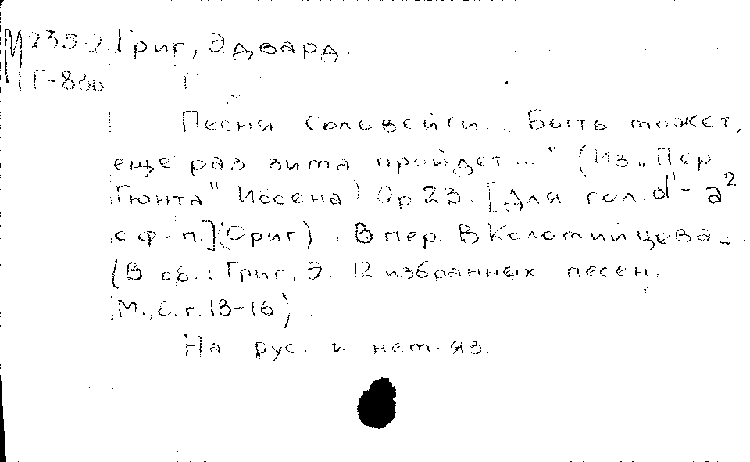 Григ, Эдвард.
Г
Песня Сольвейги. „Быть может,
еще раз зима пройдет..." (Из „Пер
Гюнта" Ибсена) Ор 23. [Для гол. d¹ - a²
с ф-п.] (Ориг). В пер. В Коломийцова.
(В сб.: Григ, Э. 12 избранных песен.
М., С.г. 13-16).
На рус. и нем. яз.